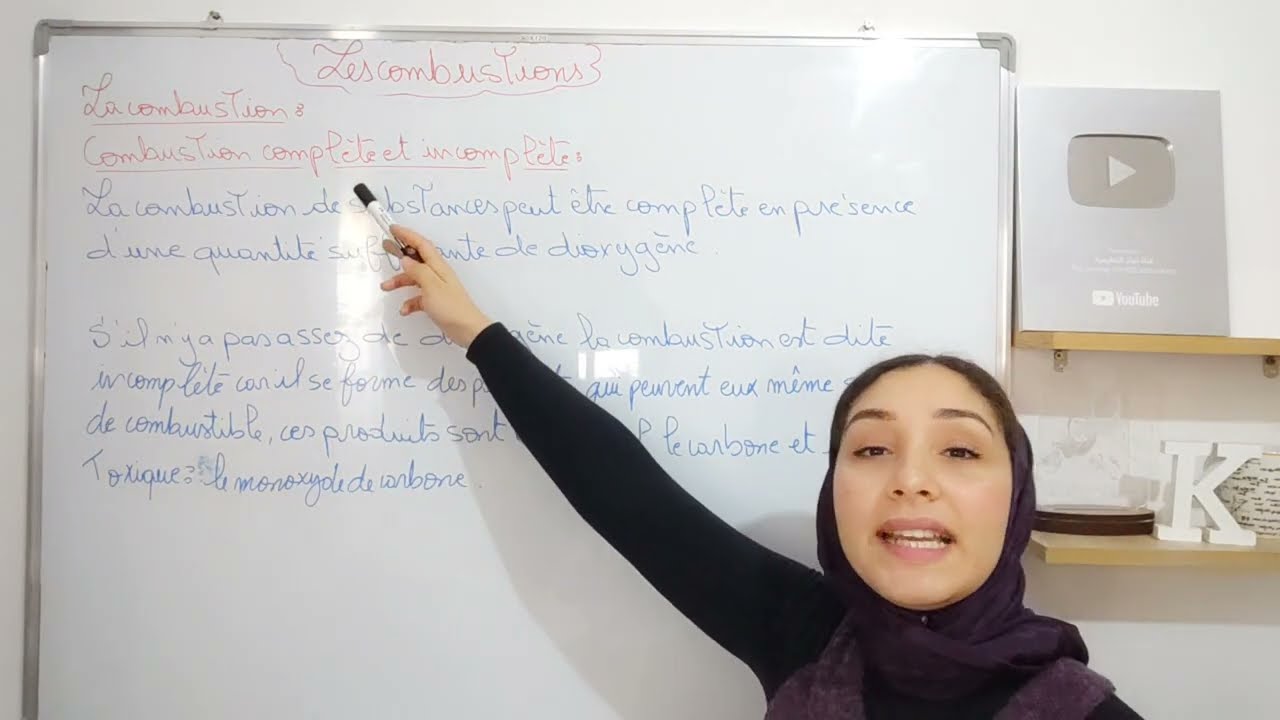 Les combustions
La combustion :
Combustion complète et incomplète :
La combustion de substances peut être complète en présence
d'une quantité suffisante de dioxygène.
S'il n'y a pas assez de dioxygène la combustion est dite
incomplèté car il se forme des qui peuvent eux même
de combustible, ces produits sont le carbone et
Toxique : le monoxyde de carbone.
YouTube
K